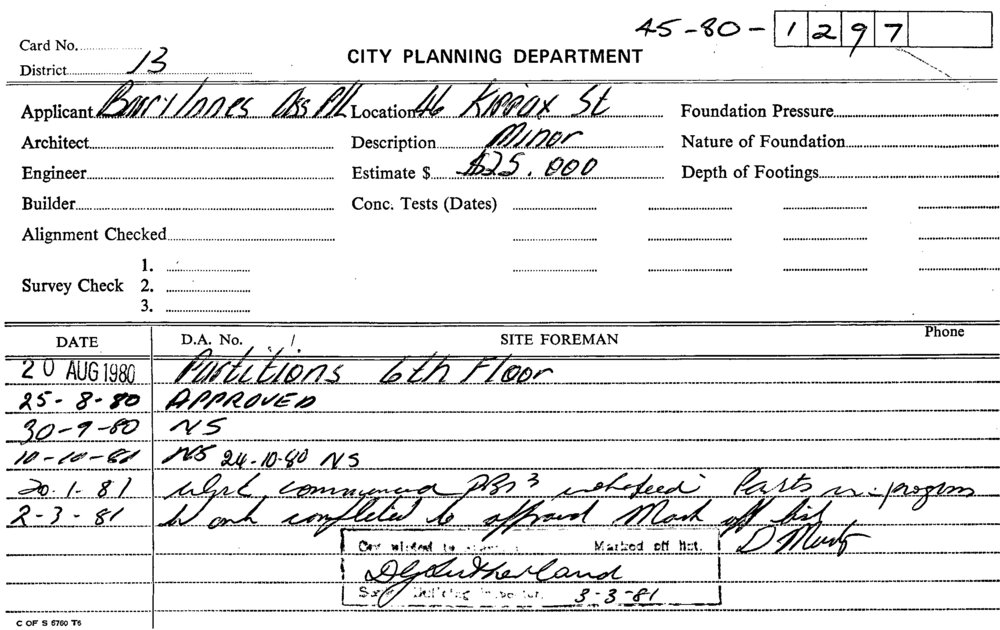 45-80-1297
Card No.
District 13
CITY PLANNING DEPARTMENT
Applicant Innes Ass P/L Location 46 Kippax St Foundation Pressure
Architect Description Minor Nature of Foundation
Engineer Estimate $ $25.000 Depth of Footings
Builder Conc. Tests (Dates)
Alignment Checked
1.
Survey Check 2.
3.
DATE D.A. No. SITE FOREMAN Phone
20 AUG 1980 Partitions 6th Floor
25-8-80 APPROVED
30-9-80 NS
10-10-80 NS 24-10-80 NS
20.1.81 Work commenced in progress
2-3-81 Work completed to approval Mark off list
Marked off list.
D
Sutherland
Building Inspector. 3-3-81
C OF S 6760 T6